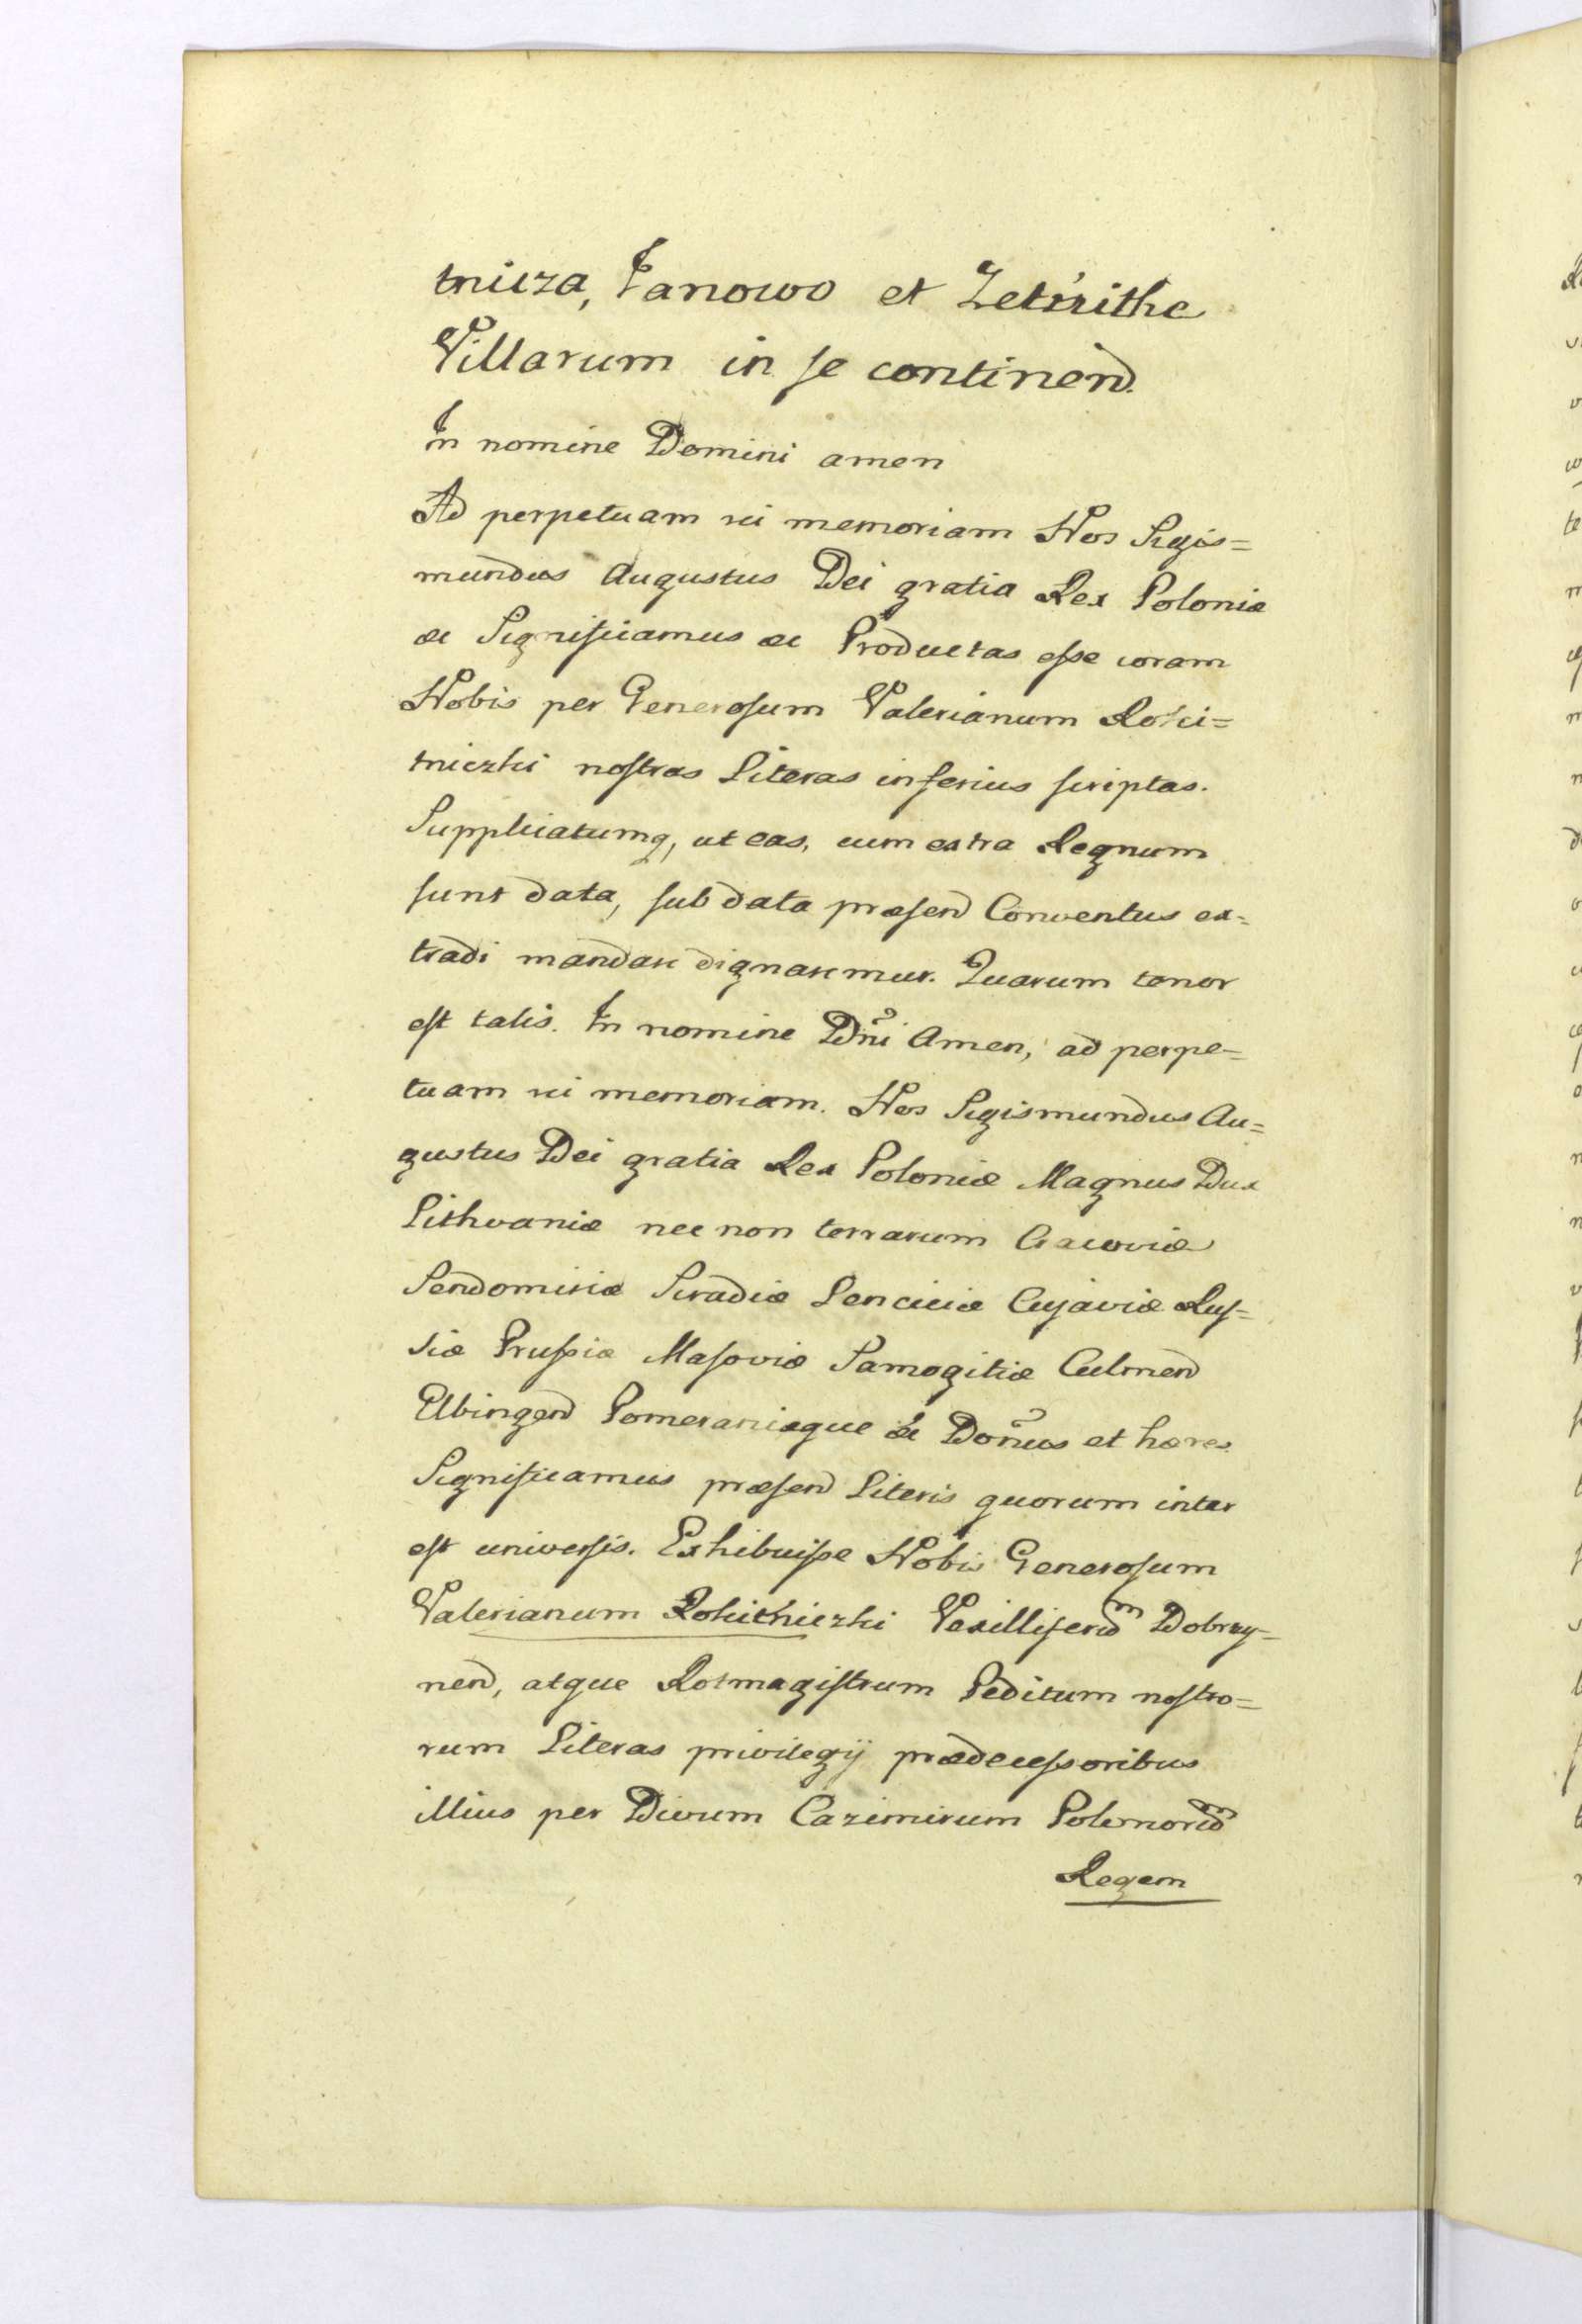 tnicza, Janowo et Zetrzithe
Villarum in se continend.
In nomine Domini amen
Ad perpetuam rei memoriam Nos Sigis=
mundus Augustus Dei gratia Rex Poloniæ
&c Significamus &c Productas esse coram
Nobis per Generosum Valerianum Roki=
tniczki nostras Literas inferius scriptas.
Supplicatumq, ut eas, cum extra Regnum
sunt data, sub data præsend Conventus ex=
tradi mandare dignaremur. Quarum tenor
est talis. In nomine Dñi Amen, ad perpe=
tuam rei memoriam. Nos Sigismundus Au=
gustus Dei gratia Rex Poloniæ Magnus Dux
Lithvaniæ nec non terrarum Cracoviæ
Sendomiriæ Siradiæ Lenciciæ Cujaviæ Rus=
siæ Prussiæ Masoviæ Samogitiæ Culmend
Elbingend Pomeraniæque &c Dom̃us et hæres
Significamus præsend Literis quorum inter
est universis. Exhibuisse Nobis Generosum
Valerianum Rokithiczki Vexilliferum Dobrzy=
nend, atque Rotmagistrum Peditum nostro=
rum Literas privilegij prædecessoribus
illius per Divum Cazimirum Polonorum
Regem